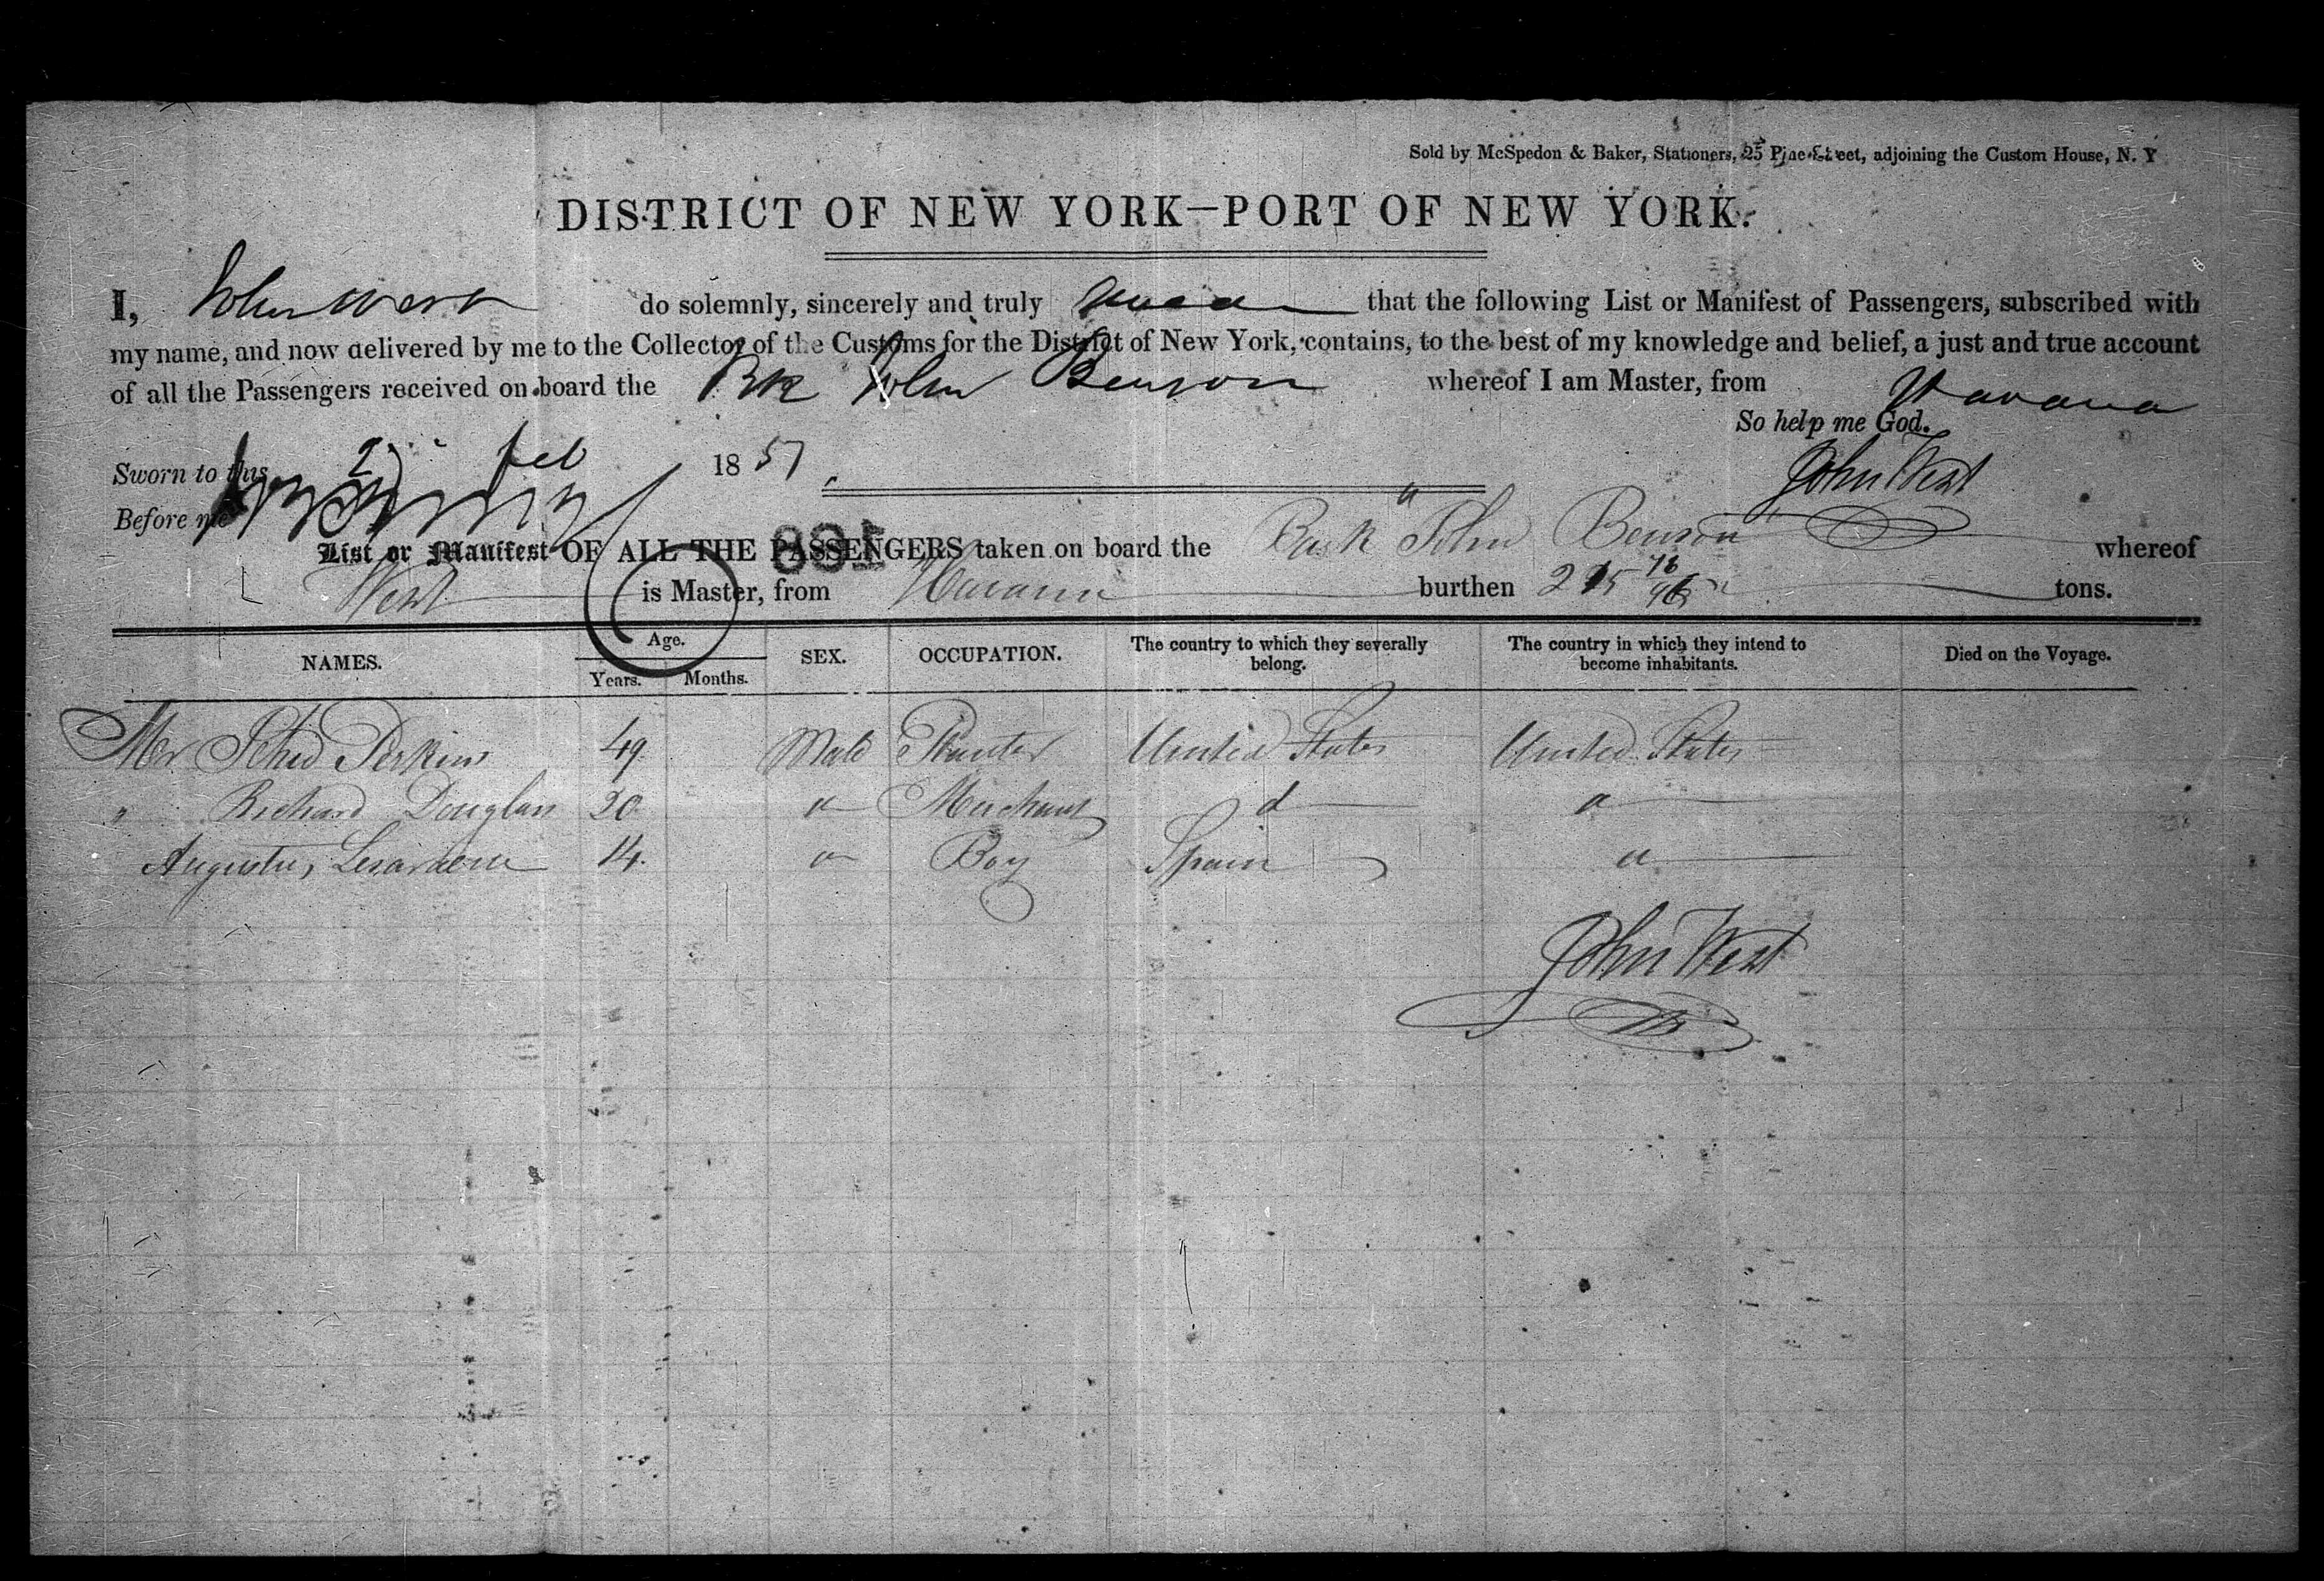 Sold by McSpedon & Baker, Stationers, 25 Pine Street, adjoining the Custom House, N. Y
DISTRICT OF NEW YORK—PORT OF NEW YORK.
I, John West do solemnly, sincerely and truly swear that the following List or Manifest of Passengers, subscribed with
my name, and now delivered by me to the Collector of the Customs for the District of New York, contains, to the best of my knowledge and belief, a just and true account
of all the Passengers received on board the Bk John Benson whereof I am Master, from Havana
So help me God.
Sworn to this 2 feb 1851 John West
Before me
List or Manifest OF ALL THE PASSENGERS taken on board the Bark "John Benson whereof
West is Master, from Havana burthen tons.
NAMES. Age. SEX. OCCUPATION. The country to which they severally belong. The country in which they intend to become inhabitants. Died on the Voyage.
Years. Months.
Mr John Perkins 49 Male Planter United States United States
" Richard Douglass 20 " Merchant d "
14 " Boy Spain "
John West